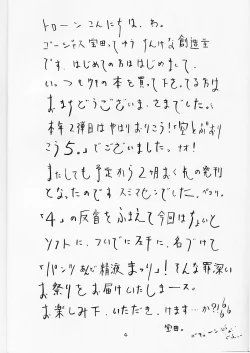 トローン こんにちは、わ。
ゴージャス宝田って すんげな創造主
です、はじめての方ははじめまして、
いつもウチの本を買って下さってる方は
まいどうございま、さまでした。
本年2弾目はやはりおりこう!「空とぶおり
こう5。」でございました。オホ!
またしても予定から2ヶ月おくれの発刊
となったのです スミマセンでした、ペコリ。
「4」の反省をふまえて今回はちょいと
ソフトに、ついでに派手に、名づけて
「パンツあんど精液まつり」! そんな罪深い
お祭りをお届けいたしまース。
お楽しみ下、いただき、けます…か?!
宝田。